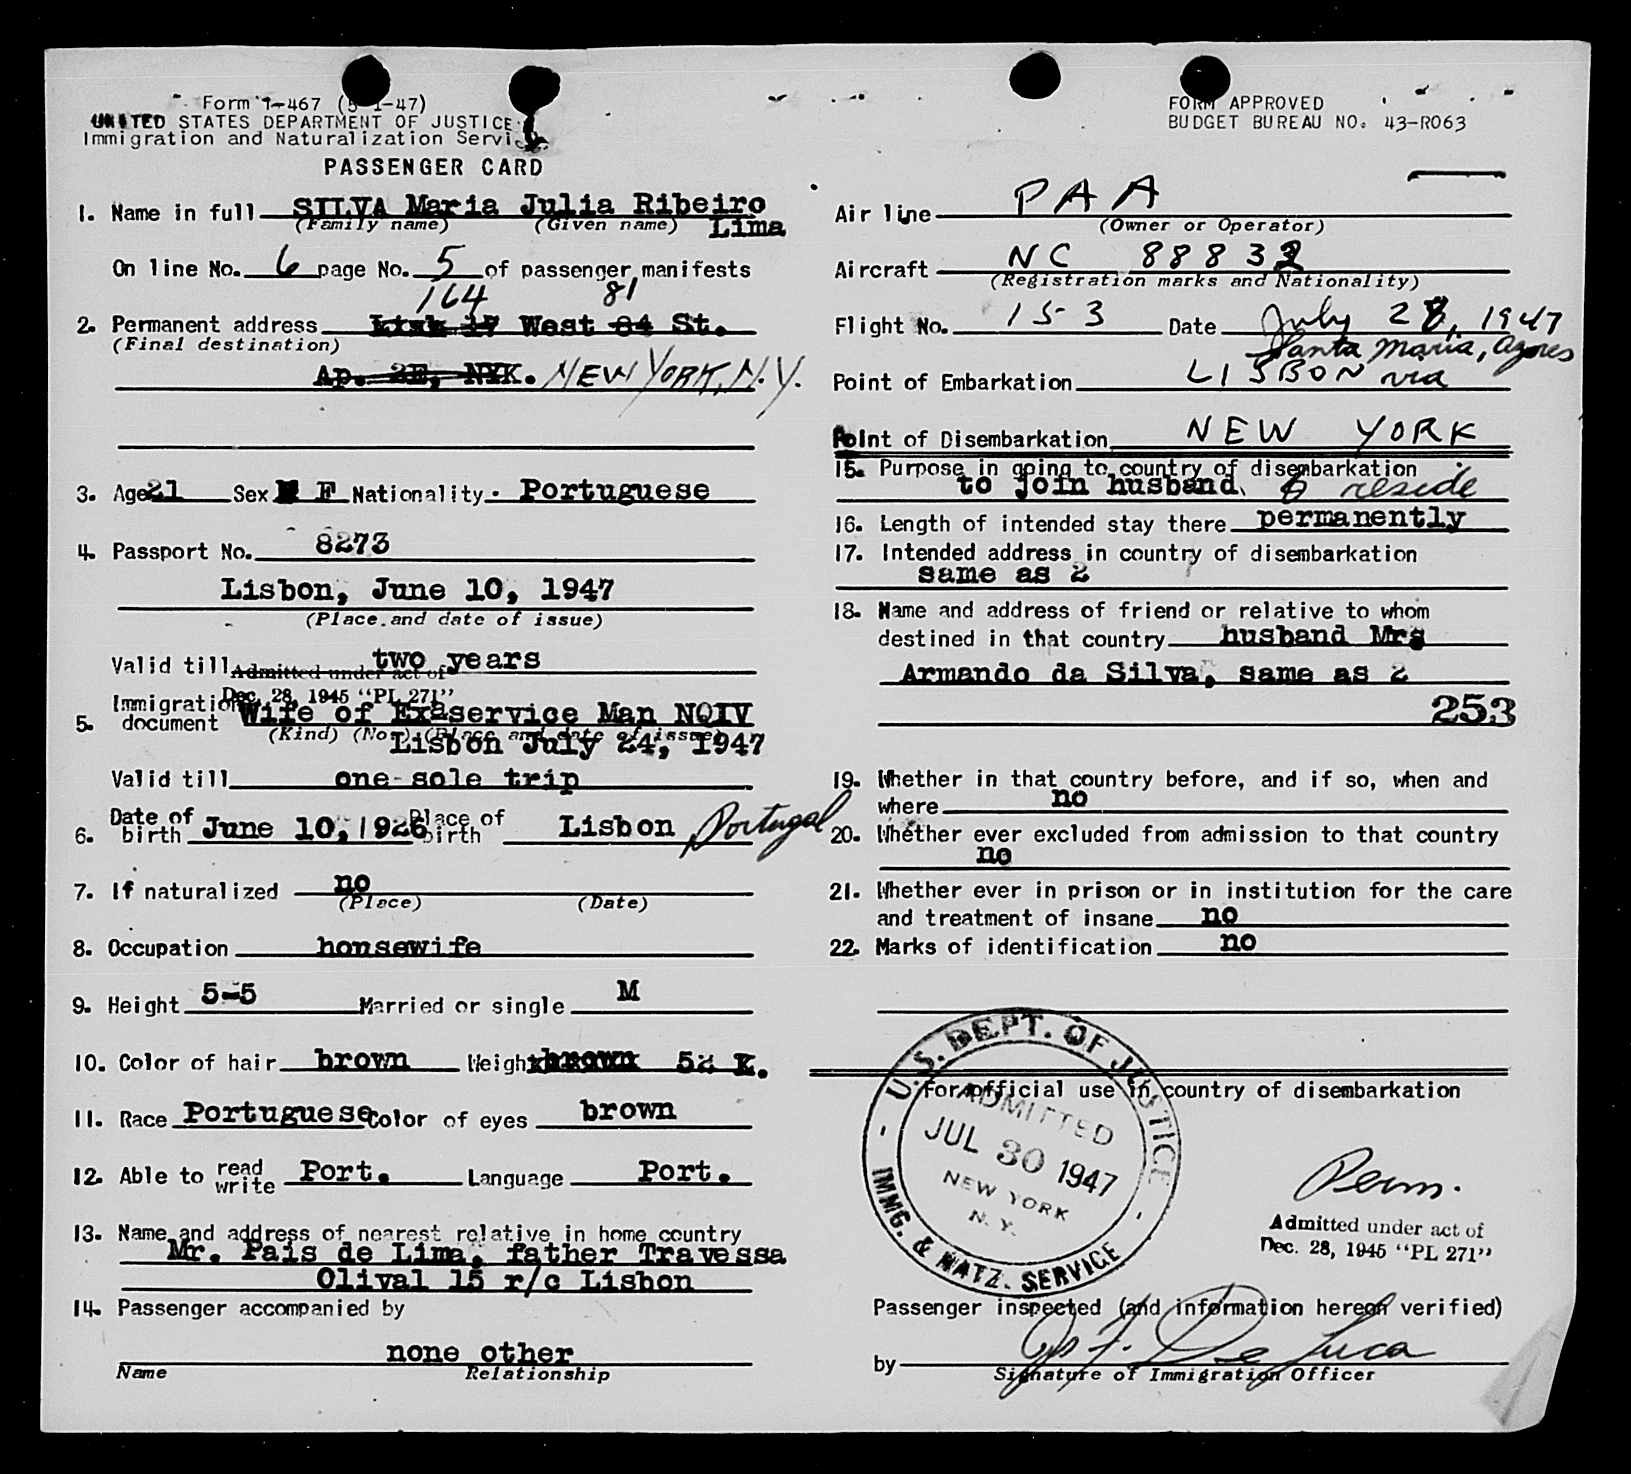 Form I-467 (5-1-47)
UNITED STATES DEPARTMENT OF JUSTICE
Immigration and Naturalization Service
PASSENGER CARD
FORM APPROVED
BUDGET BUREAU NO. 43-R063
1. Name in full SILVA Maria Julia Ribeiro
(Family name) (Given name) Lima
On line No. 6 page No. 5 of passenger manifests
164 81
2. Permanent address West 84 St.
(Final destination)
Ap. 2E, NYK. NEW YORK, N.Y.
3. Age 21 Sex F Nationality. Portuguese
4. Passport No. 8273
Lisbon, June 10, 1947
(Place and date of issue)
Valid till two years
Admitted under act of
Dec. 28, 1945 "PL 271"
5. Immigration document Wife of Ex-service Man NQIV
(Kind) (No.) (Place and date of issue)
Lisbon July 24, 1947
Valid till one sole trip
6. Date of birth June 10, 1926 Place of birth Lisbon Portugal
7. If naturalized no
(Place) (Date)
8. Occupation housewife
9. Height 5-5 Married or single M
10. Color of hair brown Weight brown 52 K.
11. Race Portuguese Color of eyes brown
12. Able to read write Port. Language Port.
13. Name and address of nearest relative in home country
Mr. Pais de Lima, father Travessa
Olival 15 r/c Lisbon
14. Passenger accompanied by
none other
Name Relationship
Air line PAA
(Owner or Operator)
Aircraft NC 88832
(Registration marks and Nationality)
Flight No. 153 Date July 28, 1947
Santa Maria, Azores
Point of Embarkation LISBON via
Point of Disembarkation NEW YORK
15. Purpose in going to country of disembarkation
to join husband, to reside
16. Length of intended stay there permanently
17. Intended address in country of disembarkation
same as 2
18. Name and address of friend or relative to whom
destined in that country husband Mrs
Armando da Silva, same as 2
253
19. Whether in that country before, and if so, when and
where no
20. Whether ever excluded from admission to that country
no
21. Whether ever in prison or in institution for the care
and treatment of insane no
22. Marks of identification no
For official use in country of disembarkation
U.S. DEPT. OF JUSTICE
ADMITTED
JUL 30 1947
NEW YORK
N. Y.
IMMG. & NATZ. SERVICE
Perm.
Admitted under act of
Dec. 28, 1945 "PL 271"
Passenger inspected (and information hereon verified)
by Jos F. De Luca
Signature of Immigration Officer